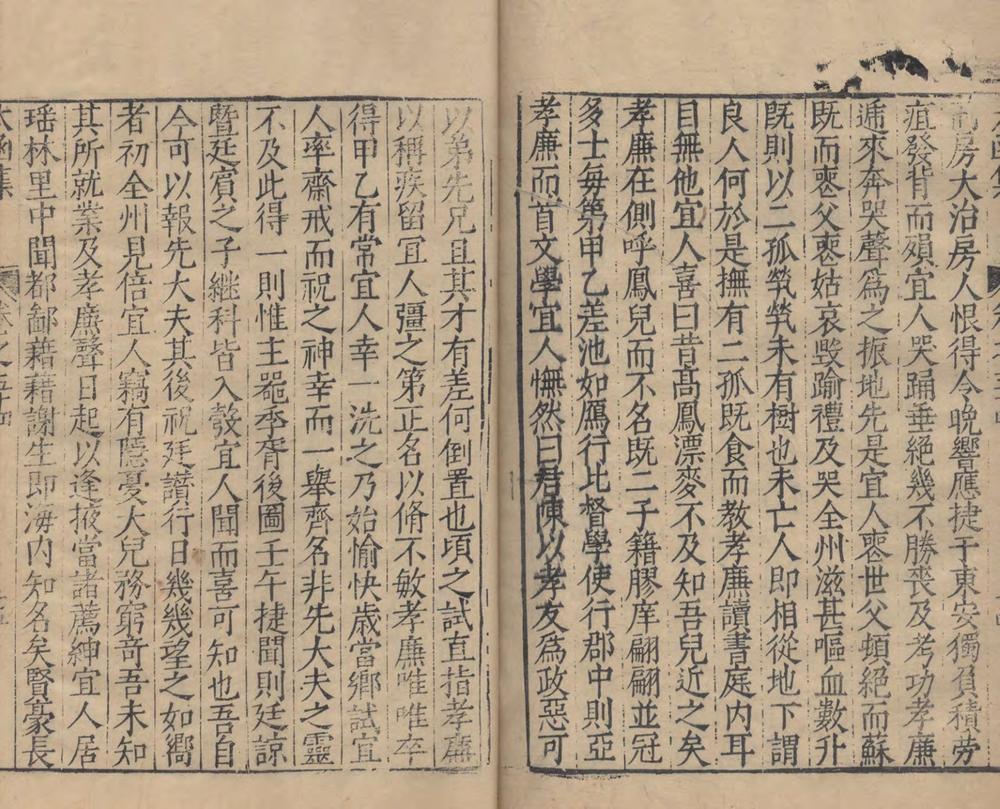 房大治房人恨得令晚響應捷于東安獨負積勞
疽發背而殞宜人哭踊垂絕幾不勝喪及考功孝廉
遞來奔哭聲爲之振地先是宜人喪世父頓絕而蘇
既而喪父喪姑哀毀踰禮及哭全州滋甚嘔血數升
既則以二孤煢煢未有樹也未亡人即相從地下謂
良人何於是撫有二孤既食而教孝廉讀書庭內耳
目無他宜人喜曰昔高鳳漂麥不及知吾兒近之矣
孝廉在側呼鳳兒而不名既二子籍膠庠翩翩並冠
多士每第甲乙差池如鴈行比督學使行郡中則亞
孝廉而首文學宜人憮然曰君陳以孝友爲政惡可
以弟先兄且其才有差何倒置也頃之試直指孝廉
以稱疾留宜人彊之第正名以脩不敏孝廉唯唯卒
得甲乙有常宜人幸一洗之乃始愉快歲當鄉試宜
人率齋戒而祝之神幸而一舉齊名非先大夫之靈
不及此得一則惟主噐季胥後圖壬午捷聞則廷諒
暨廷賓之子繼科皆入彀宜人聞而喜可知也吾自
今可以報先大夫其後祝廷讚行日幾幾望之如嚮
者初全州見倍宜人竊有隱憂大兒務窮奇吾未知
其所就業及孝廉聲日起以逢掖當諸薦紳宜人居
瑶林里中聞都鄙藉藉謝生即海内知名矣賢豪長